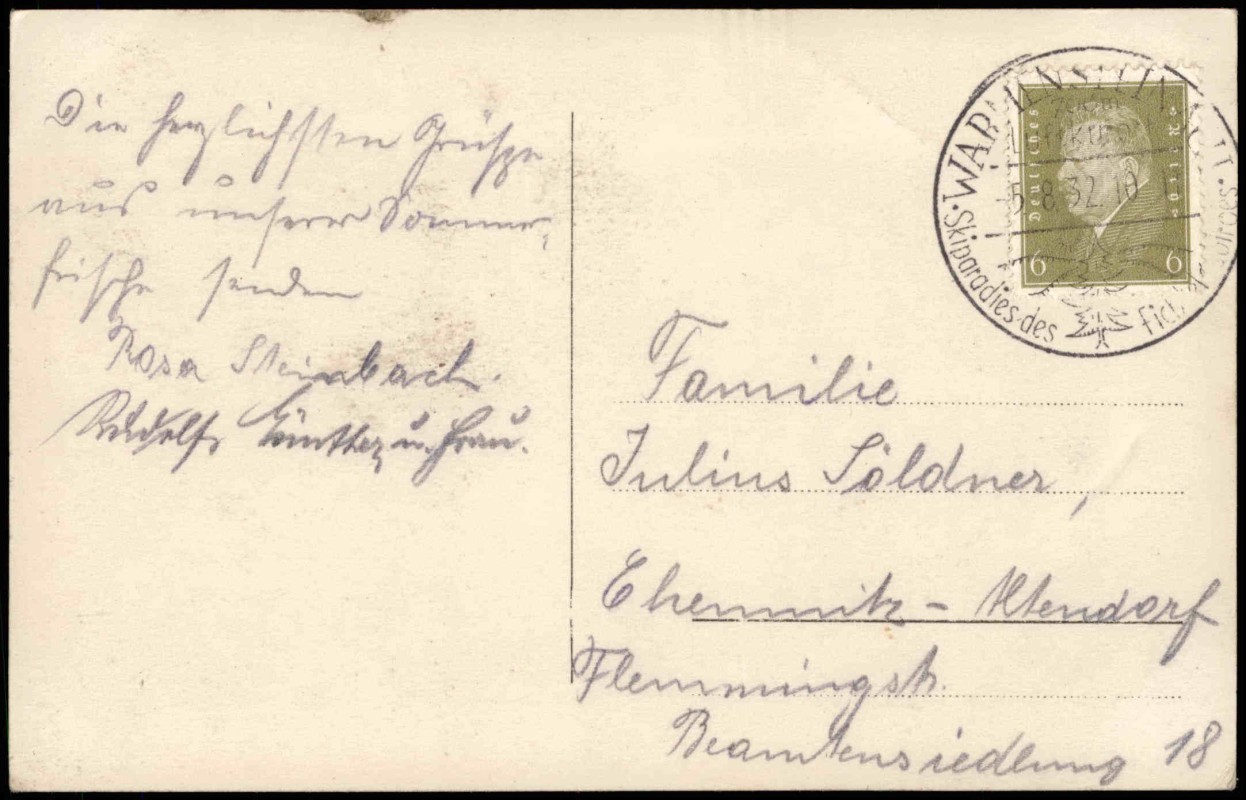 Die herzlichsten Grüße
aus unserer Sommer-
frische senden
Rosa Steinbach.
Rudolf Günther u. Frau.
WARMENSTEIN
5.8.32.18
Skiparadies des
Deutsches Reich
6 6
Familie
Julius Söldner,
Chemnitz - Altendorf
Flemmingstr.
Beamtensiedlung 18